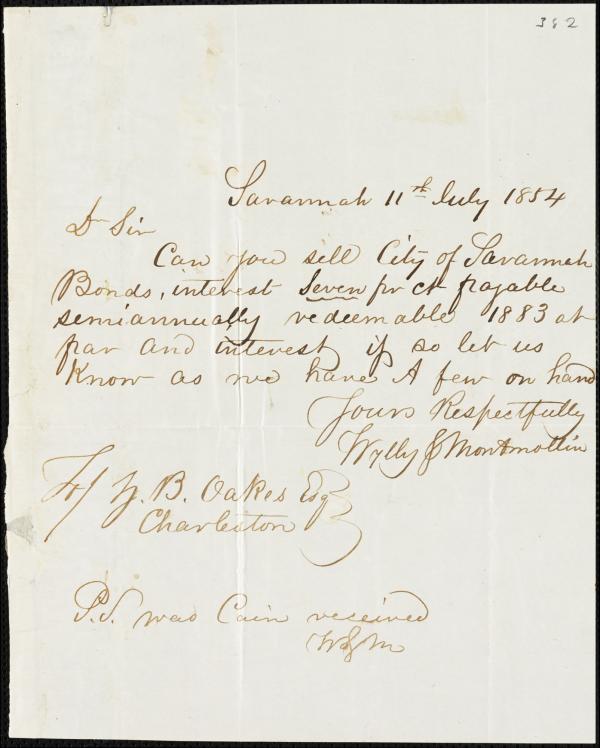 382
Savannah 11th July 1854
Dr Sir
Can you sell City of Savannah
Bonds, interest Seven pr ct payable
semiannually redeemable 1883 at
par and interest if so let us
Know as we have A few on hand
Yours Respectfully
Wylly & Montmollin
Z. B. Oakes Esq
Charleston
P.S. was Cain received
W & M